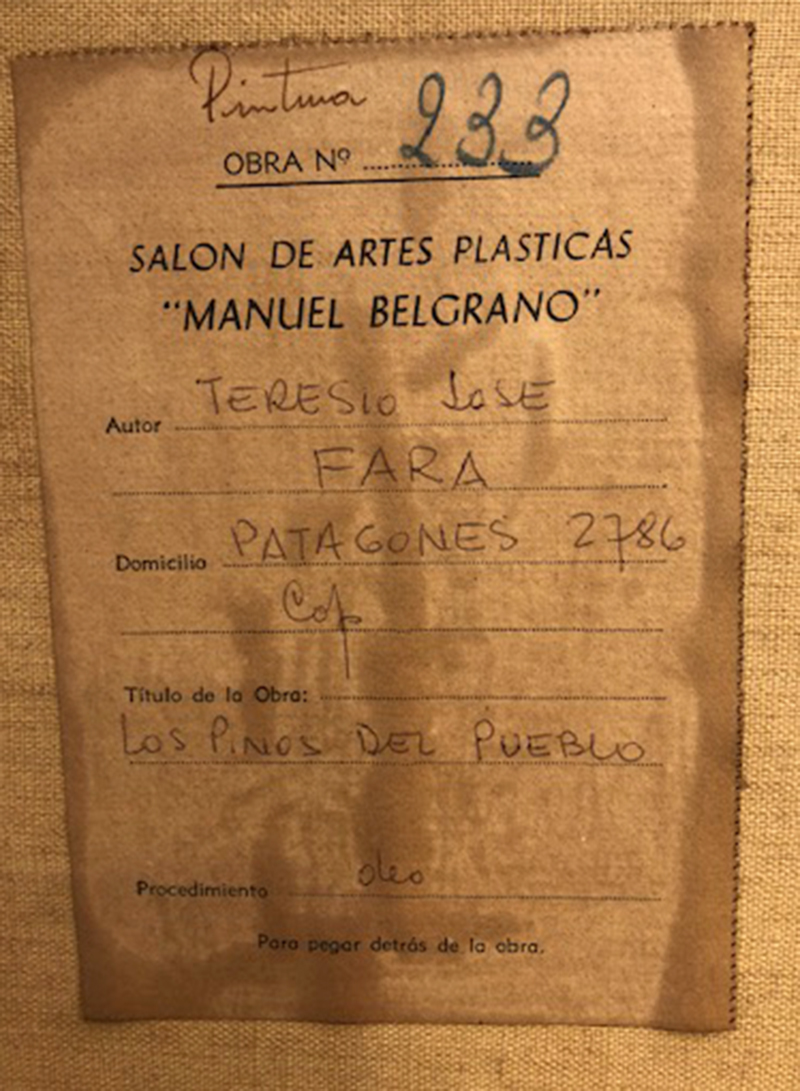 Pintura
OBRA Nº 233
SALON DE ARTES PLASTICAS
"MANUEL BELGRANO"
Autor TERESIO JOSE
FARA
Domicilio PATAGONES 2786
Cap
Título de la Obra:
LOS PINOS DEL PUEBLO
Procedimiento oleo
Para pegar detrás de la obra.